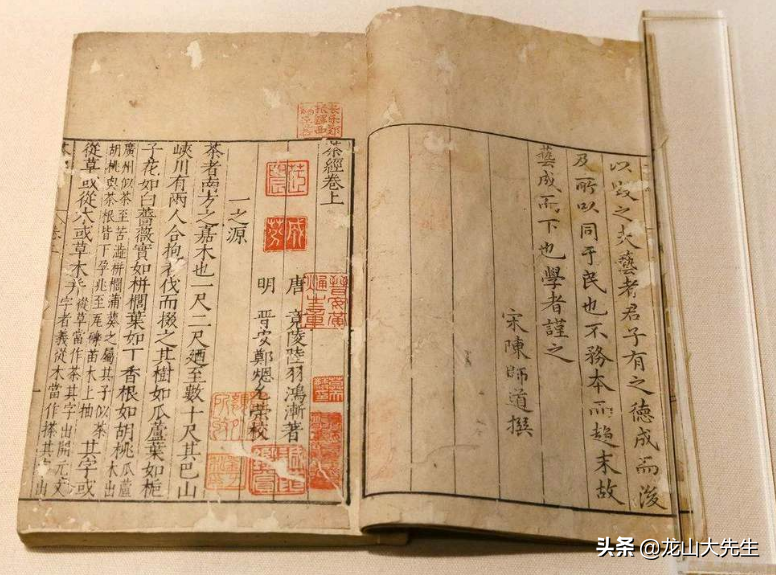 以毀之夫藝者君子有之德成而後
及所以同于民也不務本而趨末故
藝成而下也學者謹之
宋陳師道撰
茶經卷上
唐 竟陵陸羽鴻漸著
明 晉安鄭熜允榮校
一之源
茶者南方之嘉木也一尺二尺廼至數十尺其巴山
峽川有兩人合抱者伐而掇之其樹如瓜蘆葉如梔
子花如白薔薇實如栟櫚葉如丁香根如胡桃瓜蘆木出
廣州似茶至苦澁栟櫚蒲葵之屬其子似茶
胡桃與茶根皆下孕兆至瓦礫苗木上抽 其字或
從草或從木或草木并從草當作茶其字出開元文
字者義從木當作搽其字出
头条 @龙山大先生